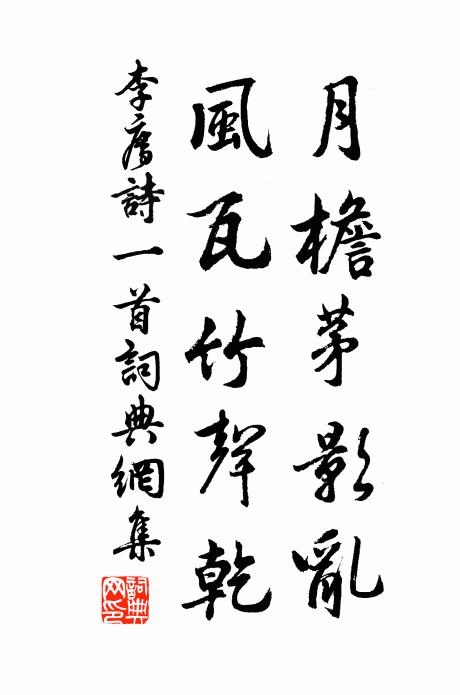 月檐茅影亂
風瓦竹聲乾
李廌詩一首詞典網集